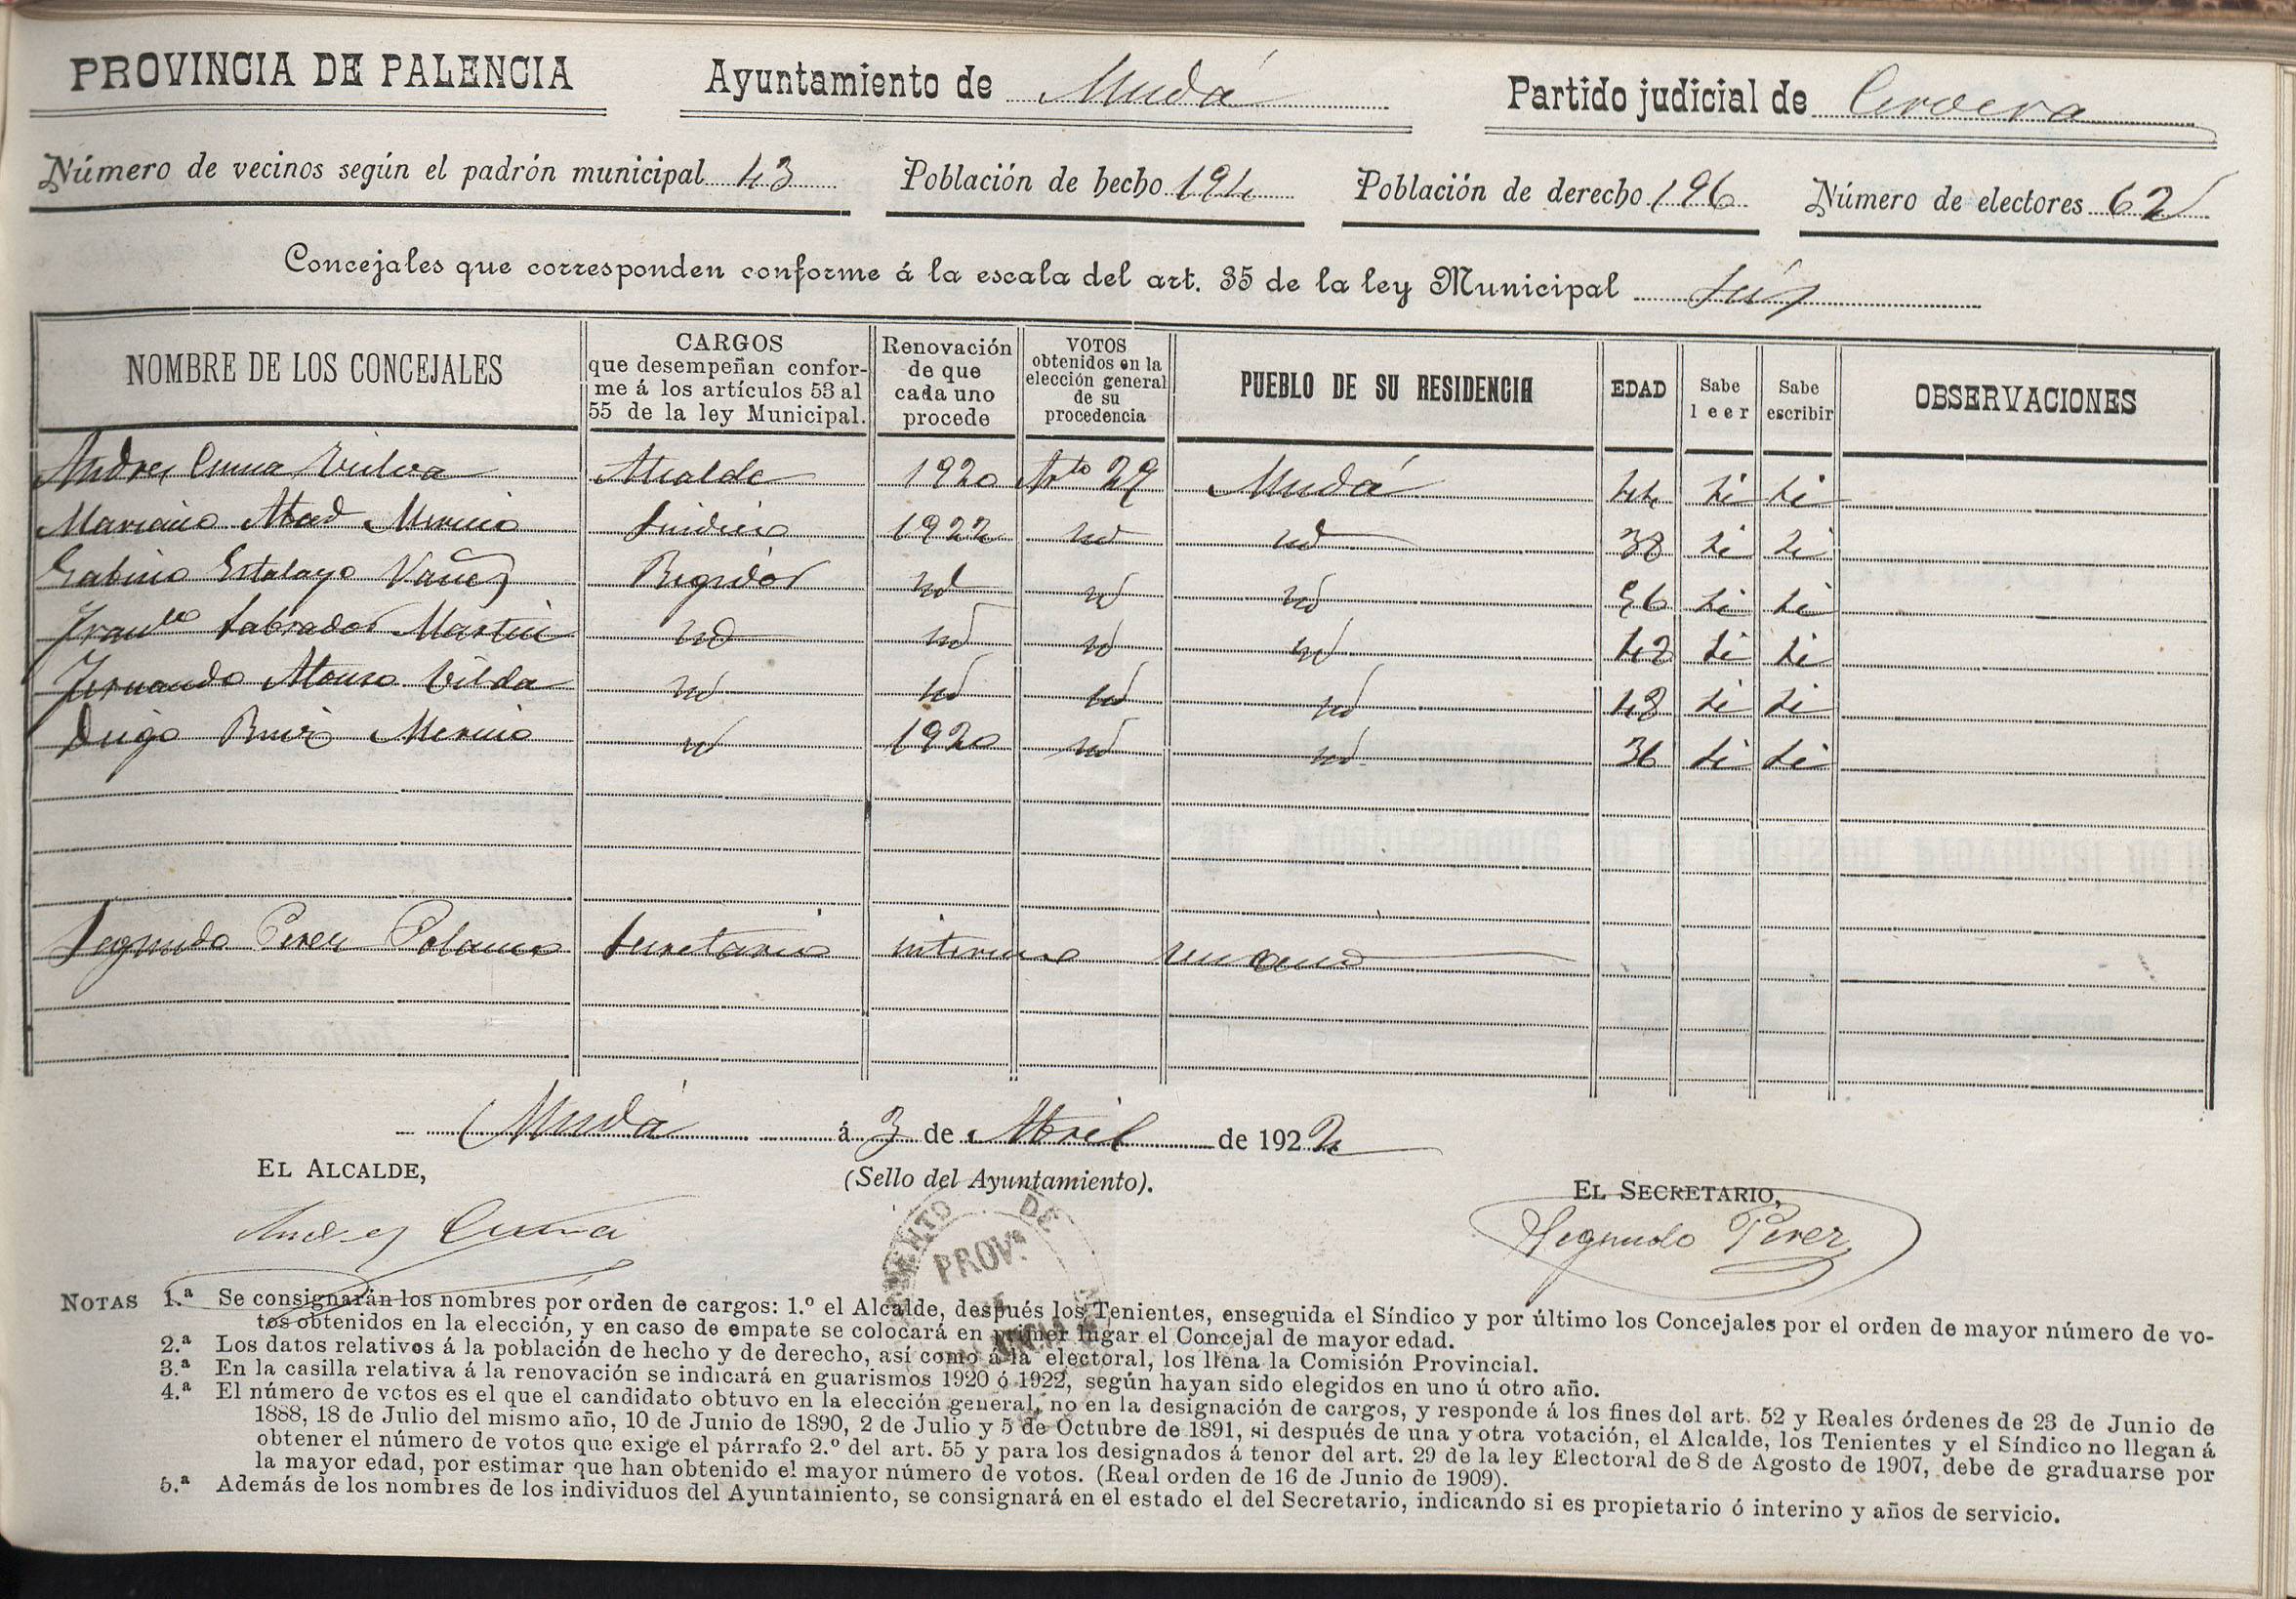 PROVINCIA DE PALENCIA Ayuntamiento de Mudá Partido judicial de Cervera
Número de vecinos según el padrón municipal 43 Población de hecho 194 Población de derecho 196 Número de electores 62
Concejales que corresponden conforme á la escala del art. 35 de la ley Municipal Séis
NOMBRE DE LOS CONCEJALES CARGOS que desempeñan conforme á los artículos 53 al 55 de la ley Municipal. Renovación de que cada uno procede VOTOS obtenidos en la elección general de su procedencia PUEBLO DE SU RESIDENCIA EDAD Sabe leer Sabe escribir OBSERVACIONES
Andres Alcalde 1920 Arto 29 Mudá 44 Si Si
Mariano Abad Merino Sindico 1922 id id 38 Si Si
Gabino Estalayo Regidor id id id 56 Si Si
Franco Labrador Martin id id id id 42 Si Si
Fernando Alonso Vilda id id id id 48 Si Si
Diego Ruiz Merino id 1920 id id 36 Si Si
Segundo Perez Polanco Secretario interino
Mudá á 3 de Abril de 1922
EL ALCALDE, (Sello del Ayuntamiento). EL SECRETARIO,
Andres Segundo Perez
DE
PROVª
NOTAS 1.ª Se consignarán los nombres por orden de cargos: 1.º el Alcalde, después los Tenientes, enseguida el Síndico y por último los Concejales por el orden de mayor número de vo-
tos obtenidos en la elección, y en caso de empate se colocará en primer lugar el Concejal de mayor edad.
2.ª Los datos relativos á la población de hecho y de derecho, así como á la electoral, los llena la Comisión Provincial.
3.ª En la casilla relativa á la renovación se indicará en guarismos 1920 ó 1922, según hayan sido elegidos en uno ú otro año.
4.ª El número de votos es el que el candidato obtuvo en la elección general, no en la designación de cargos, y responde á los fines del art. 52 y Reales órdenes de 23 de Junio de
1888, 18 de Julio del mismo año, 10 de Junio de 1890, 2 de Julio y 5 de Octubre de 1891, si después de una y otra votación, el Alcalde, los Tenientes y el Síndico no llegan á
obtener el número de votos que exige el párrafo 2.º del art. 55 y para los designados á tenor del art. 29 de la ley Electoral de 8 de Agosto de 1907, debe de graduarse por
la mayor edad, por estimar que han obtenido el mayor número de votos. (Real orden de 16 de Junio de 1909).
5.ª Además de los nombres de los individuos del Ayuntamiento, se consignará en el estado el del Secretario, indicando si es propietario ó interino y años de servicio.